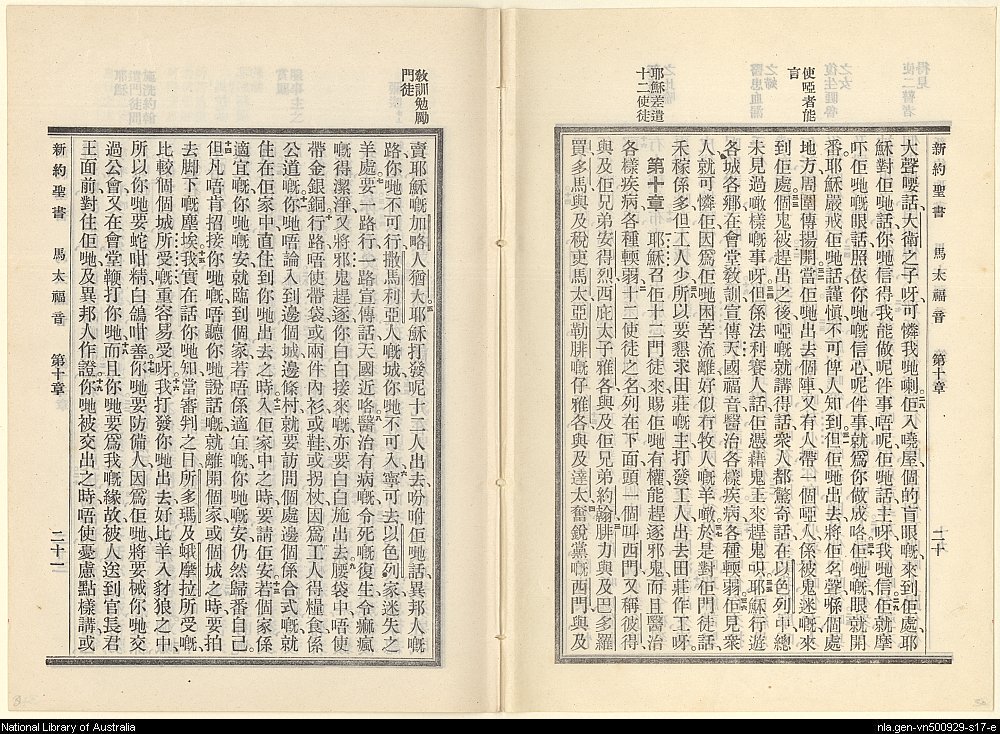 使啞者能言
耶穌差遣十二使徒
新約聖書 馬太福音 第十章 二十
大聲嗌話大衛之子呀可憐我哋喇佢入嘵屋個的盲眼嘅來到佢處耶
穌對佢哋話你哋信得我能做呢件事唔呢佢哋話主呀我哋信佢就摩
吓佢哋嘅眼話照依你哋嘅信心呢件事就爲你做成咯佢哋嘅眼就開
番耶穌嚴戒佢哋話謹愼不可俾人知到但佢哋出去將佢名聲喺個處
地方周圍傳揚開當佢哋出去個陣又有人帶一個啞人係被鬼迷嘅來
到佢處個鬼被趕出之後啞嘅就講得話衆人都驚奇話在以色列中總
未見過噉樣嘅事呀但係法利賽人話佢憑藉鬼王來趕鬼呮耶穌行遊
各城各鄉在會堂教訓宣傳天國福音醫治各樣疾病各種輭弱佢見衆
人就可憐佢因爲佢哋困苦流離好似冇牧人嘅羊噉於是對佢門徒話
禾稼係多但工人少所以要懇求田莊嘅主打發工人出去田莊作工呀
第十章 耶穌召佢十二門徒來賜佢哋有權能趕逐邪鬼而且醫治
各樣疾病各種輭弱十二使徒之名列在下面頭一個叫西門又稱彼得
與及佢兄弟安得烈西庇太子雅各與及佢兄弟約翰腓力與及巴多羅
買多馬與及稅吏馬太亞勒腓嘅仔雅各與及達太奮銳黨嘅西門與及
教訓勉勵門徒
賣耶穌嘅加畧人猶大耶穌打發呢十二人出去吩咐佢哋話異邦人嘅
路你哋不可行撒馬利亞人嘅城你哋不可入寧可去以色列家迷失之
羊處要一路行一路宣傳話天國近咯醫治有病嘅令死嘅復生令痲瘋
嘅得潔淨又將邪鬼趕逐你白白接來嘅亦要白白施出去腰袋中唔使
帶金銀銅行路唔使帶袋或兩件內衫或鞋或拐杖因爲工人得糧食係
公道嘅你哋唔論入到邊個城邊條村就要訪問個處邊個係合式嘅就
住在佢家中直住到你哋出去之時入佢家中之時要請佢安若個家係
適宜嘅你哋嘅安就臨到個家若唔係適宜嘅你哋嘅安仍然歸番自己
但凡唔肯招接你哋嘅唔聽你哋說話嘅就離開個家或個城之時要拍
去脚下嘅塵埃我實在話你哋知當審判之日所多瑪及蛾摩拉所受嘅
比較個個城所受嘅重容易受呀我打發你哋出去好比羊入豺狼之中
所以你哋要蛇咁精白鴿咁善你哋要防備人因爲佢哋將要械你哋交
過公會又在會堂鞭打你哋而且你哋要爲我嘅緣故被人送到官長君
王面前對住佢哋及異邦人作證你哋被交出之時唔使憂慮點樣講或
新約聖書 馬太福音 第十章 二十一
National Library of Australia
nla.gen-vn500929-s17-e